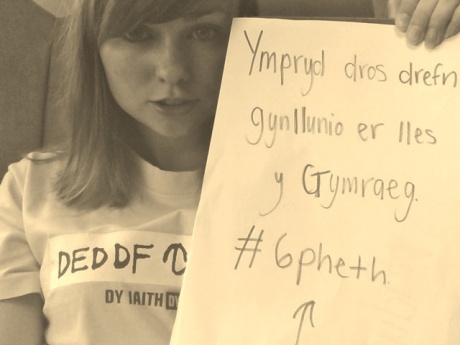 Ympryd dros drefn
gynllunio er lles
y Gymraeg.
# 6pheth
DEDDF
DY IAITH